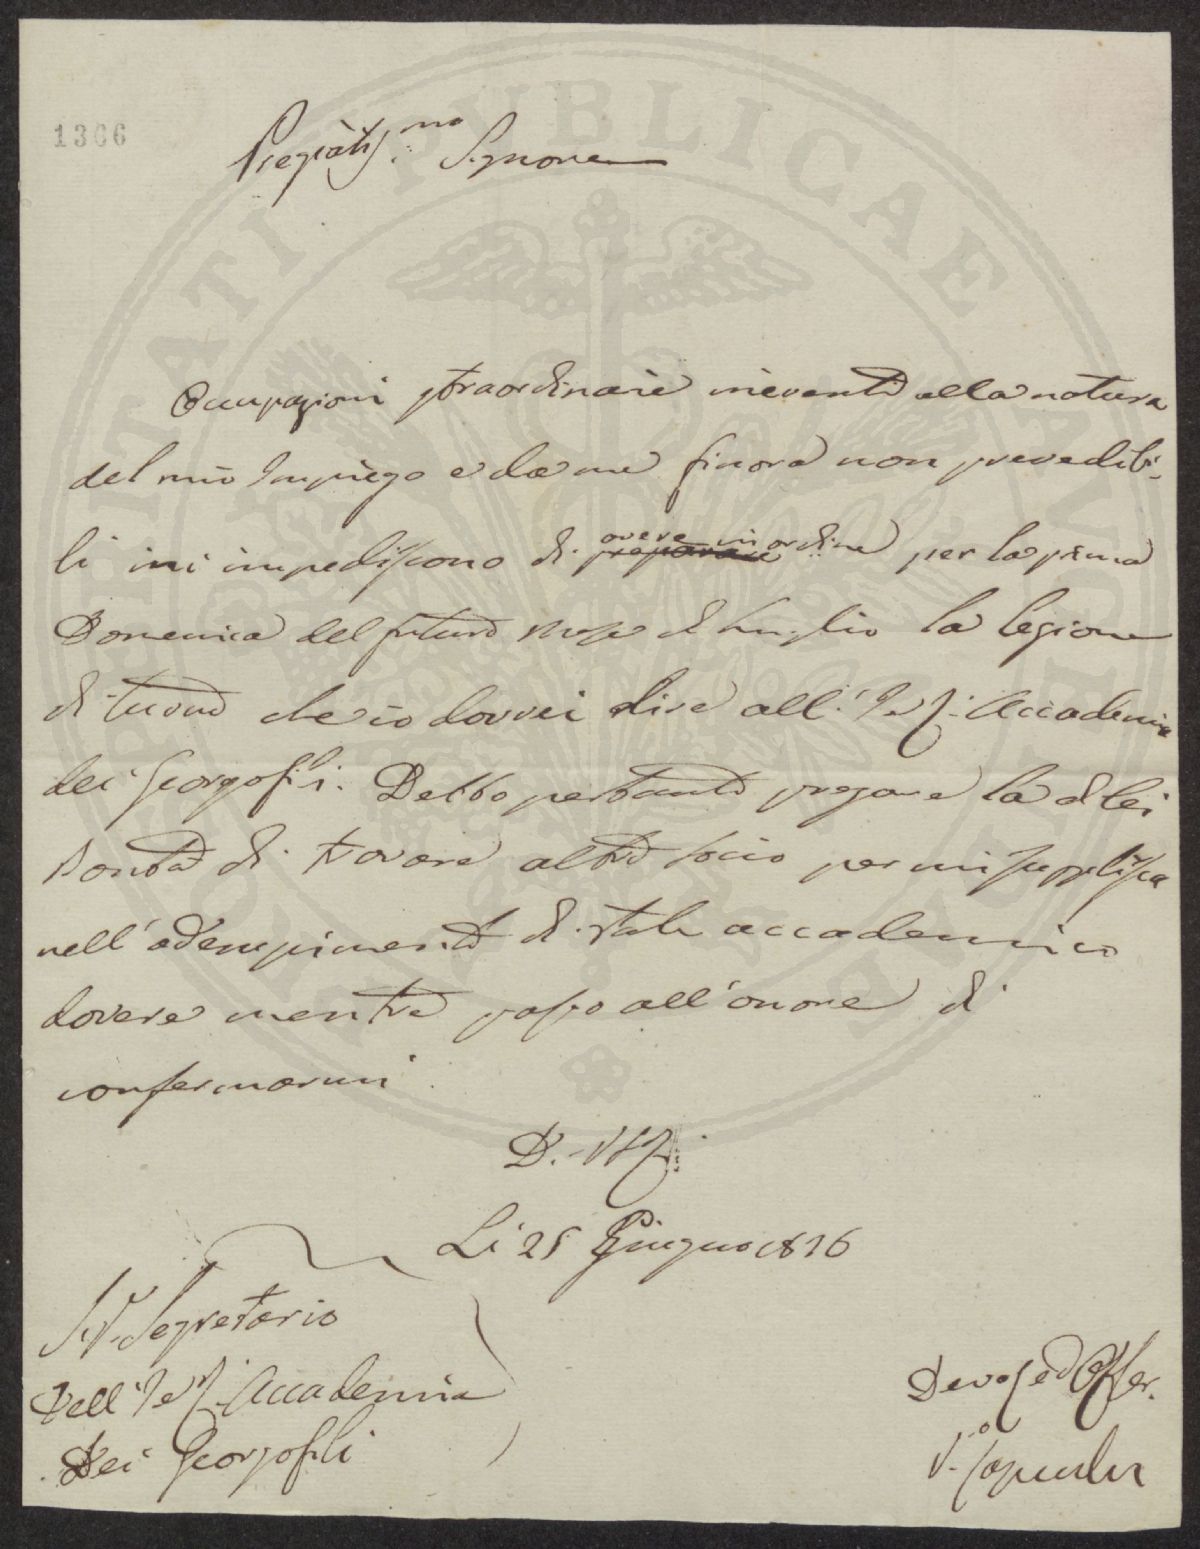 1306
Pregiatis.mo Signore
Occupazioni straordinarie inerenti alla natura
del mio Impiego e da me finora non prevedibi-
li mi impediscono di preparare avere in ordine per la prima
Domenica del futuro Mese di Luglio la lezione
di turno che io dovrei dire all' I e R. Accademia
dei Georgofili. Debbo pertanto pregare la di lei
Bontà di trovare altro socio per mi supplisca
nell'adempimento di tale accademico
dovere mentre passo all'onore di
confermarmi
D. VS
Li 25 Giugno 1826
Segretario
Dell' I e R. Accademia
Dei Georgofili
Devo. ed Obb. Ser.